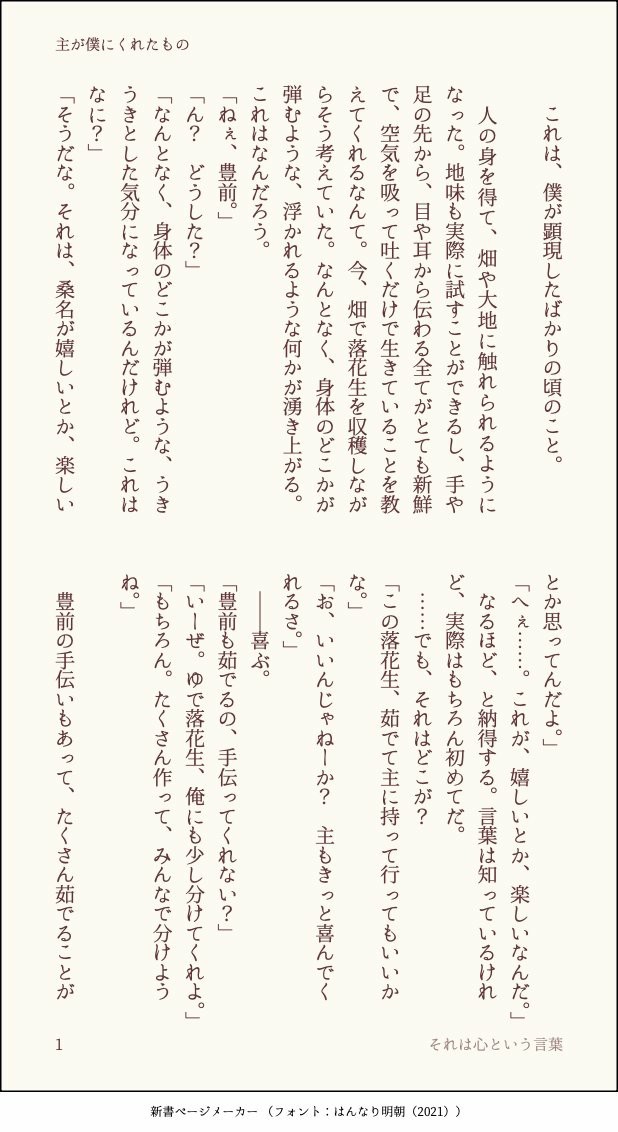 主が僕にくれたもの
これは、僕が顕現したばかりの頃のこと。
人の身を得て、畑や大地に触れられるように
なった。地味も実際に試すことができるし、手や
足の先から、目や耳から伝わる全てがとても新鮮
で、空気を吸って吐くだけで生きていることを教
えてくれるなんて。今、畑で落花生を収穫しなが
らそう考えていた。なんとなく、身体のどこかが
弾むような、浮かれるような何かが湧き上がる。
これはなんだろう。
「ねぇ、豊前。」
「ん？　どうした？」
「なんとなく、身体のどこかが弾むような、うき
うきとした気分になっているんだけれど。これは
なに？」
「そうだな。それは、桑名が嬉しいとか、楽しい
とか思ってんだよ。」
「へぇ……。これが、嬉しいとか、楽しいなんだ。」
なるほど、と納得する。言葉は知っているけれ
ど、実際はもちろん初めてだ。
……でも、それはどこが？
「この落花生、茹でて主に持って行ってもいいか
な。」
「お、いいんじゃねーか？　主もきっと喜んでく
れるさ。」
――喜ぶ。
「豊前も茹でるの、手伝ってくれない？」
「いーぜ。ゆで落花生、俺にも少し分けてくれよ。」
「もちろん。たくさん作って、みんなで分けよう
ね。」
豊前の手伝いもあって、たくさん茹でることが
1
それは心という言葉
新書ページメーカー （フォント：はんなり明朝（2021））